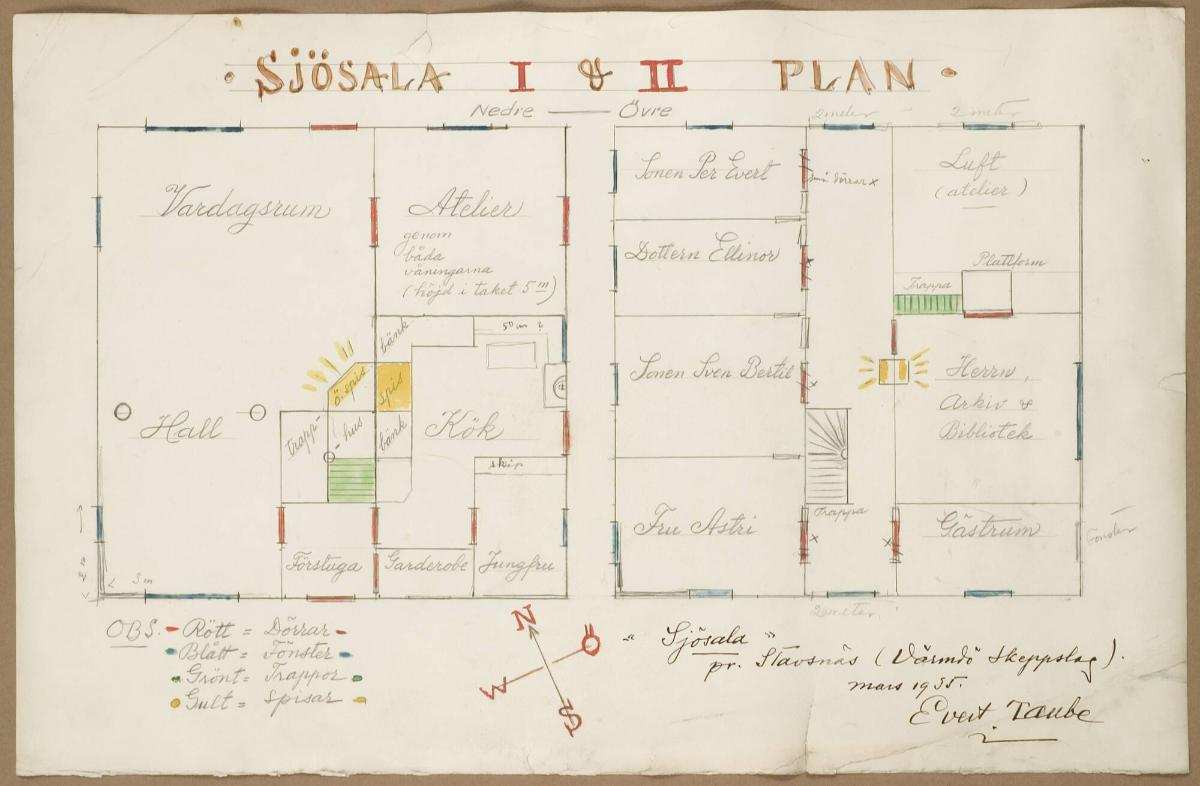 · SJÖSALA I & II PLAN ·
Nedre — Övre
Vardagsrum
Atelier
genom
båda
våningarna
(höjd i taket 5 m)
bänk
50 cm ?
ö. spis
spis
Hall
trapp-
hus
bänk
Kök
skåp
2 m
3 m
Förstuga
Garderobe
Jungfru
2 meter
2 meter
Sonen Per Evert
små dörrar x
Luft
(atelier)
Dottern Ellinor
Plattform
Trappa
Sonen Sven Bertil
Herrn,
Arkiv &
Bibliotek
Fru Astri
Trappa
Gästrum
Fönster
2 meter
OBS. - Rött = Dörrar -
- Blått = Fönster -
- Grönt = Trappor -
Gult = Spisar
N
Ö
W
S
" Sjösala "
pr. Stavsnäs (Värmdö Skeppslag).
mars 1935.
Evert Taube